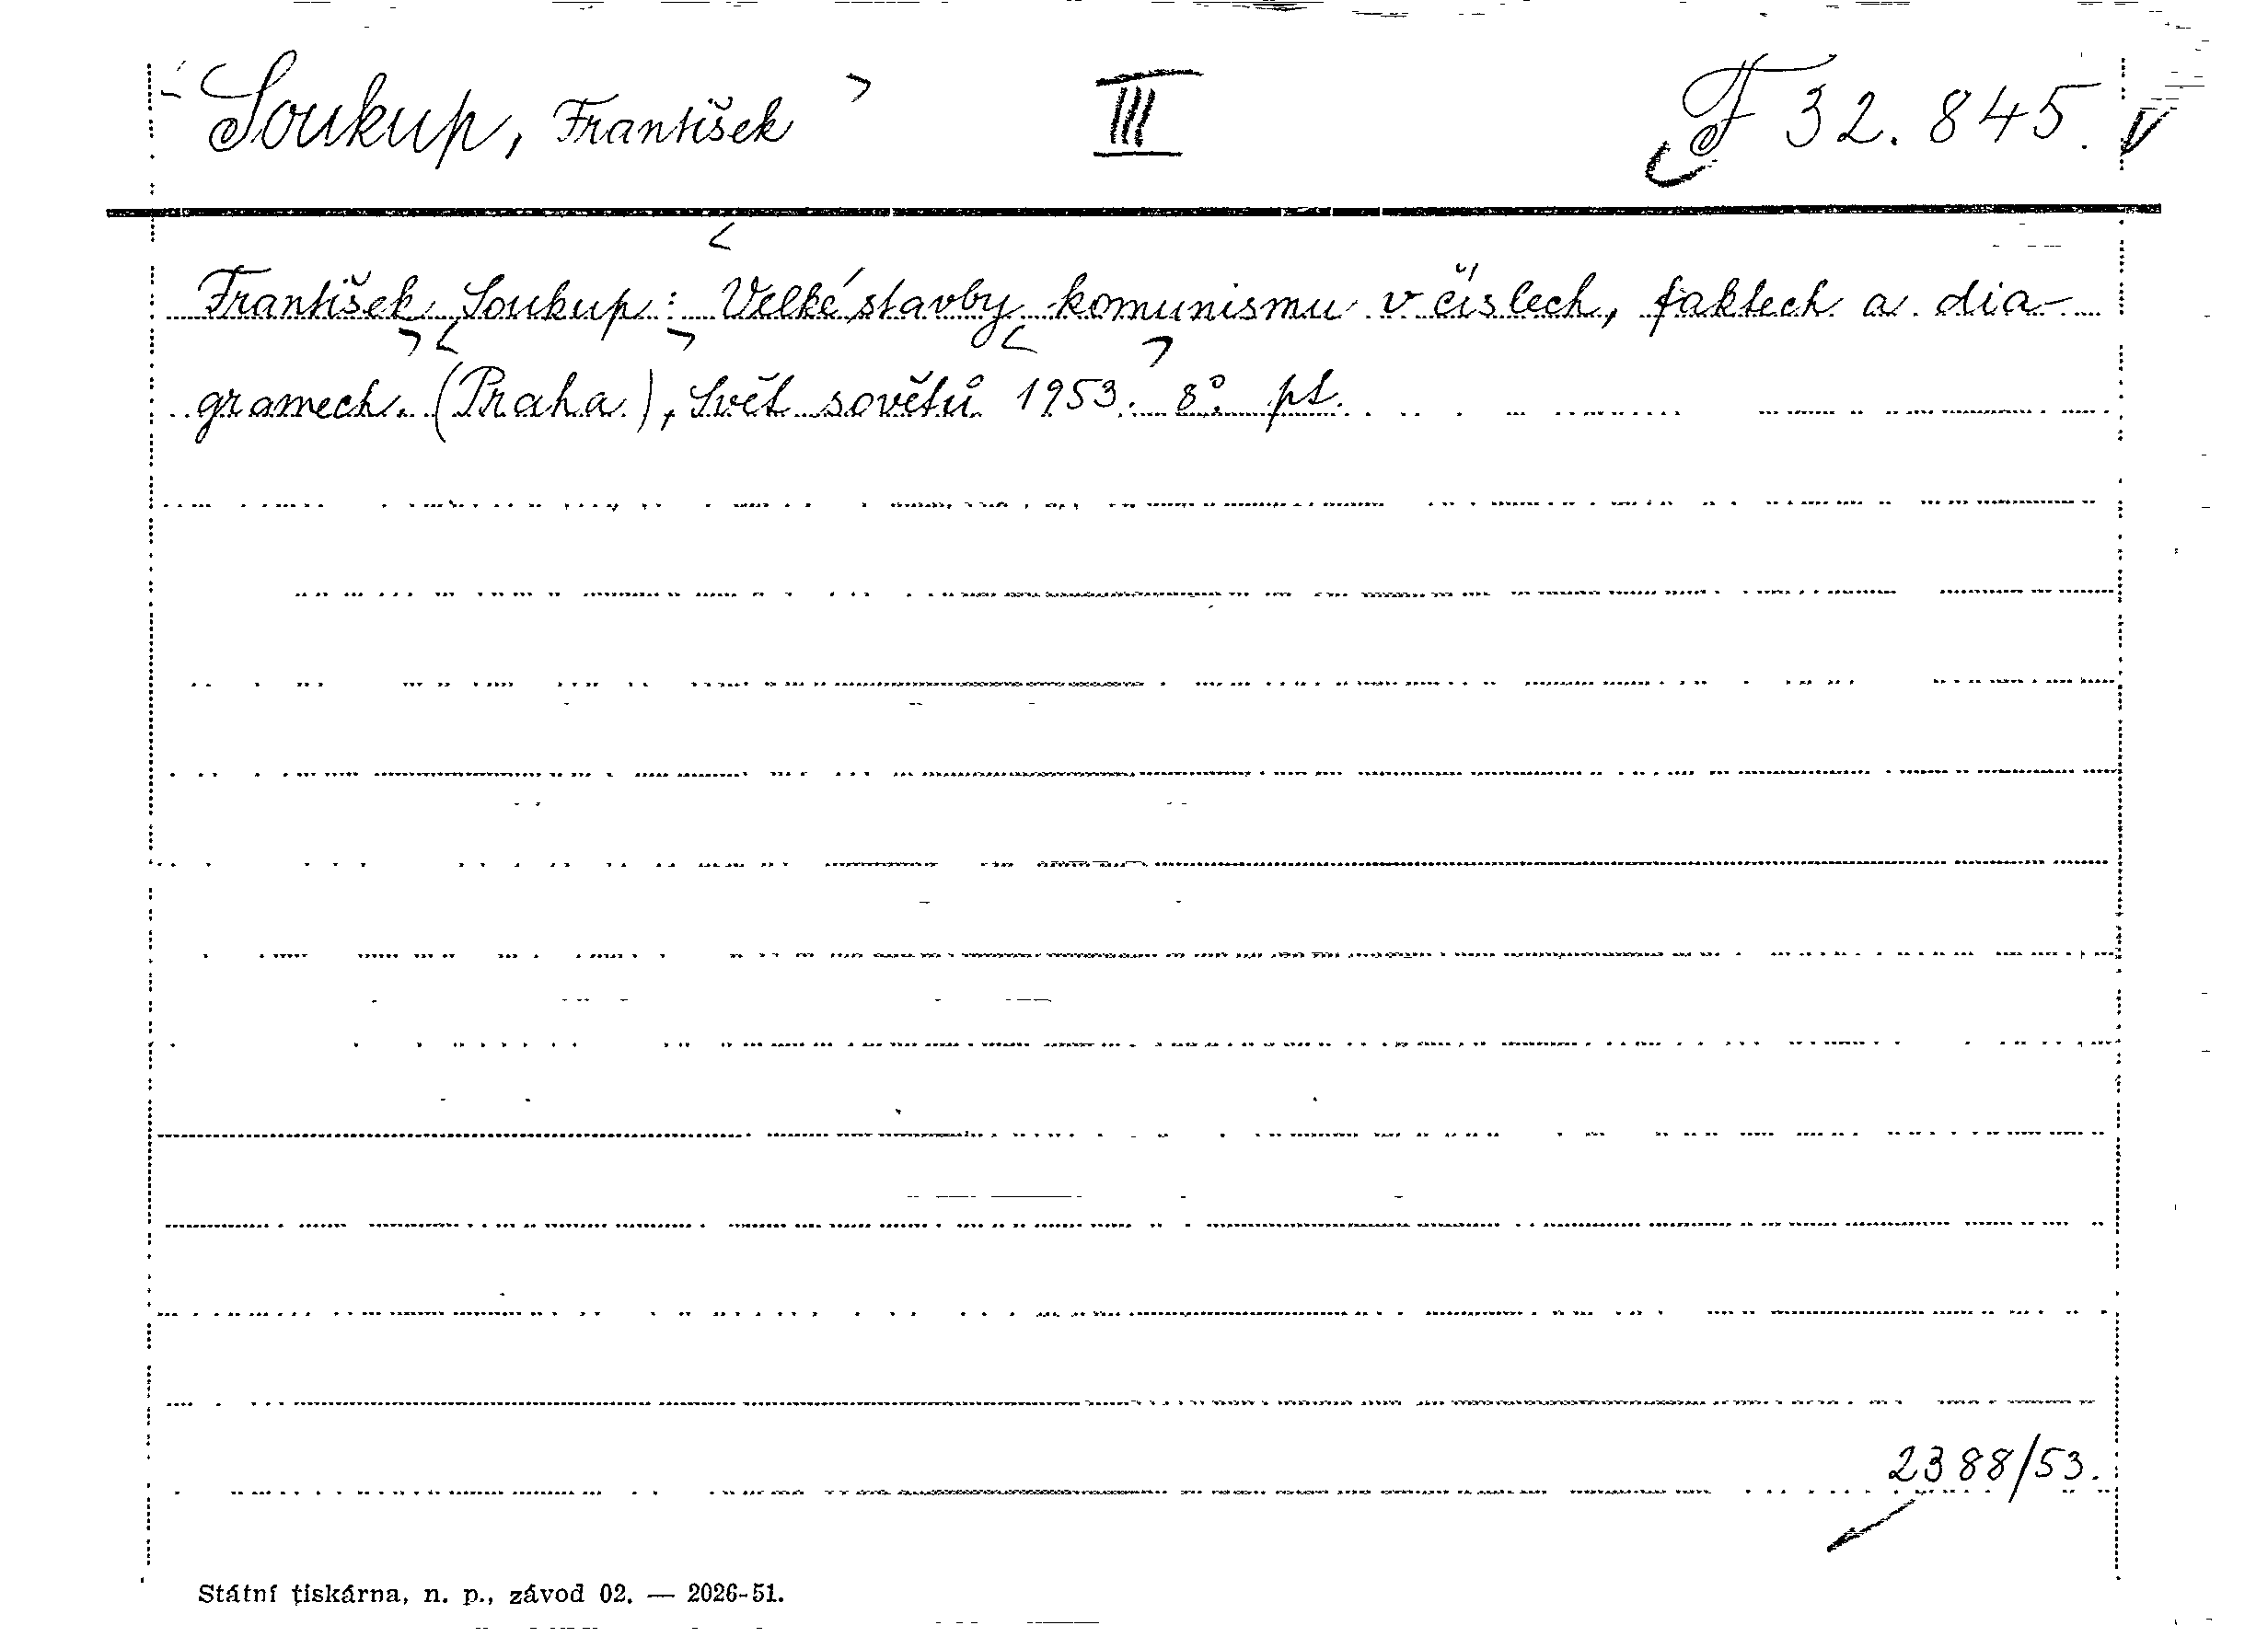 Soukup, František III F 32.845. V
František Soukup: Velké stavby komunismu v číslech, faktech a dia-
gramech. (Praha), Svět sovětů 1953. 8° pt.
2388/53.
Státní tiskárna, n. p., závod 02. — 2026-51.